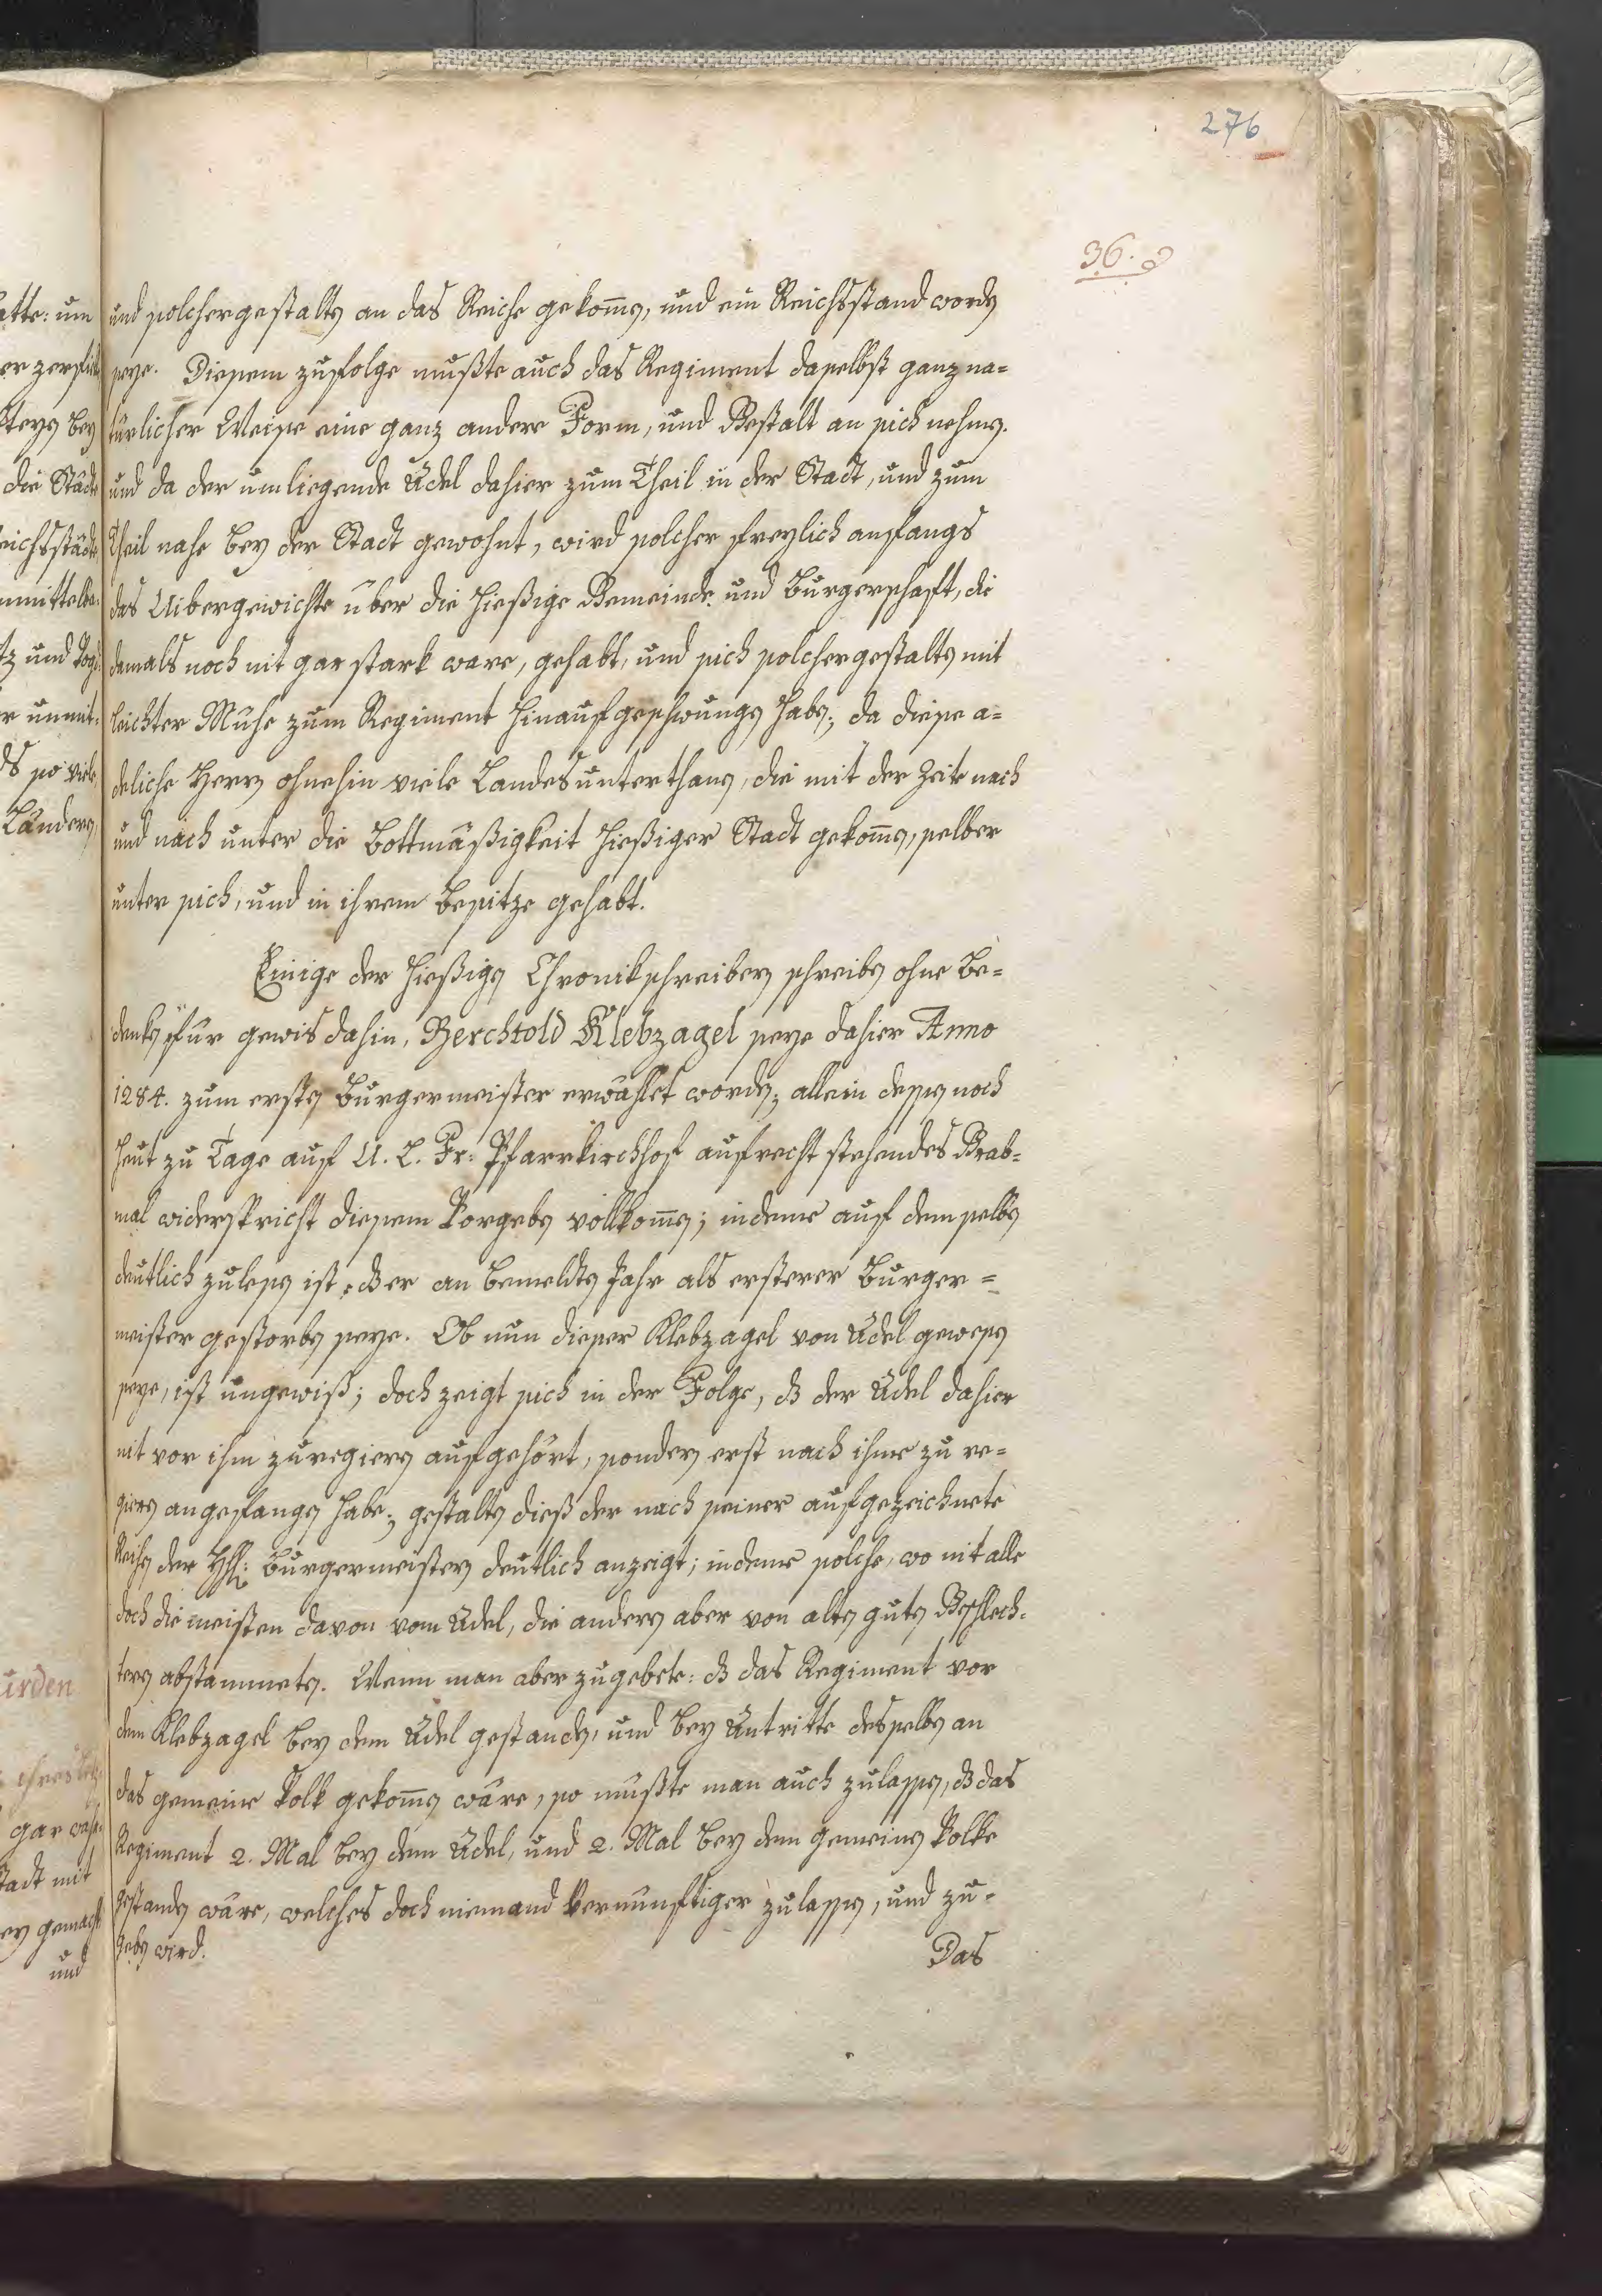 276
36.
und solchergestalten an das Reiche gekom̄en, und ein Reichsstand worden
seye. Diesem zufolge mußte auch das Regiment daselbst ganz na=
türlicher Weise eine ganz andere Form, und Gestalt an sich nehmen.
und da der umliegende Adel dahier zum Theil in der Stadt, und zum
Theil nahe bey der Stadt gewohnt, wird solcher freylich anfangs
das Uibergewichte über die hießige Gemeinde und Burgerschaft, die
damals noch nit gar stark ware, gehabt, und sich solchergestalten mit
leichter Mühe zum Regiment hinaufgeschwungen haben; da diese a=
deliche Herren ohnehin viele Landesunterthanen, die mit der Zeite nach
und nach unter die Bottmäßigkeit hießiger Stadt gekom̄en, selber
unter sich, und in ihrem Besitze gehabt.
Einige der hießigen Chronikschreibern schreiben ohne Be=
denken für gewis dahin, Berchtold Klebzagel seye dahier Anno
1284. zum ersten Burgermeister erwählet worden; allein dessen noch
heut zu Tage auf U. L. Fr: Pfarrkirchhof aufrecht stehendes Grab=
mal widerspricht diesem Vorgeben vollkom̄en; indeme auf demselben
deutlich zulesen ist, dß er an bemeldten Jahr als ersterer Burger=
meister gestorben seye. Ob nun dieser Klebzagel von Adel gewesen
seye, ist ungewiß; doch zeigt sich in der Folge, dß der Adel dahier
nit vor ihm zuregieren aufgehört, sondern erst nach ihme zu re=
gieren angefangen habe; gestalten dieß der nach seiner aufgezeichnete
Reihen der Hh: Burgermeistern deutlich anzeigt; indeme solche, wo nit alle
doch die meisten davon vom Adel, die andern aber von alten guten Geschlech=
tern abstammeten. Wenn man aber zugebete: dß das Regiment vor
dem Klebzagel bey dem Adel gestanden, und bey Antritte desselben an
das gemeine Volk gekom̄en wäre, so müßte man auch zulassen, dß das
Regiment 2. Mal bey dem Adel, und 2. Mal bey dem gemeinen Volke
gestanden wäre, welches doch niemand Vernünftiger zulassen, und zu=
geben wird.
Das